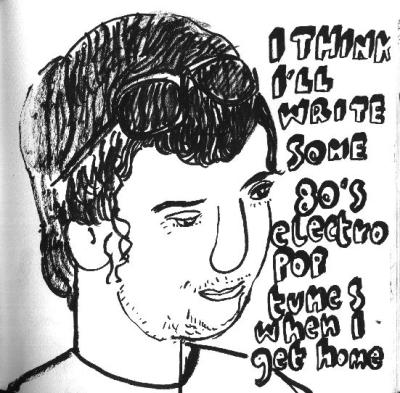 I THINK
I'LL
WRITE
SOME
80'S
electro
POP
tunes
when I
get home